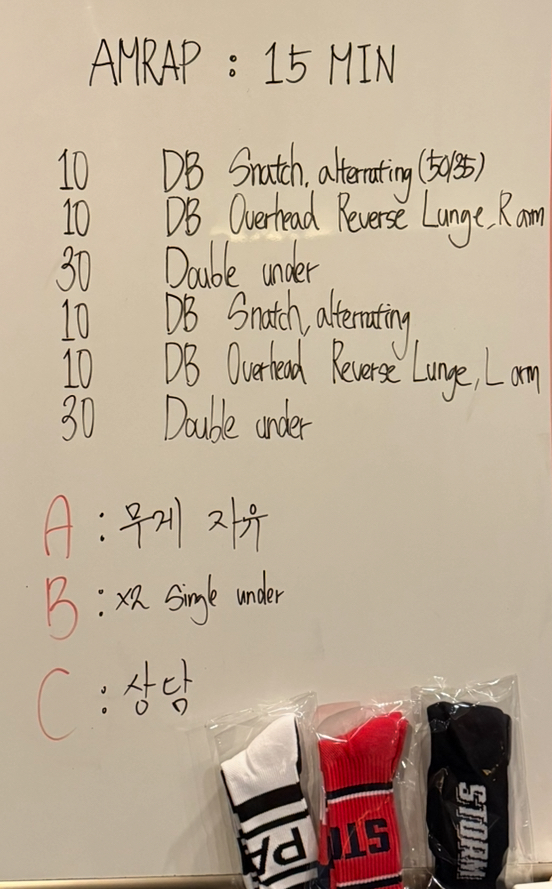 AMRAP : 15 MIN
10 DB Snatch, alternating (50/35)
10 DB Overhead Reverse Lunge, R arm
30 Double under
10 DB Snatch, alternating
10 DB Overhead Reverse Lunge, L arm
30 Double under
A : 무게 자유
B : x2 Single under
C : 상담
PA
STO
STORM